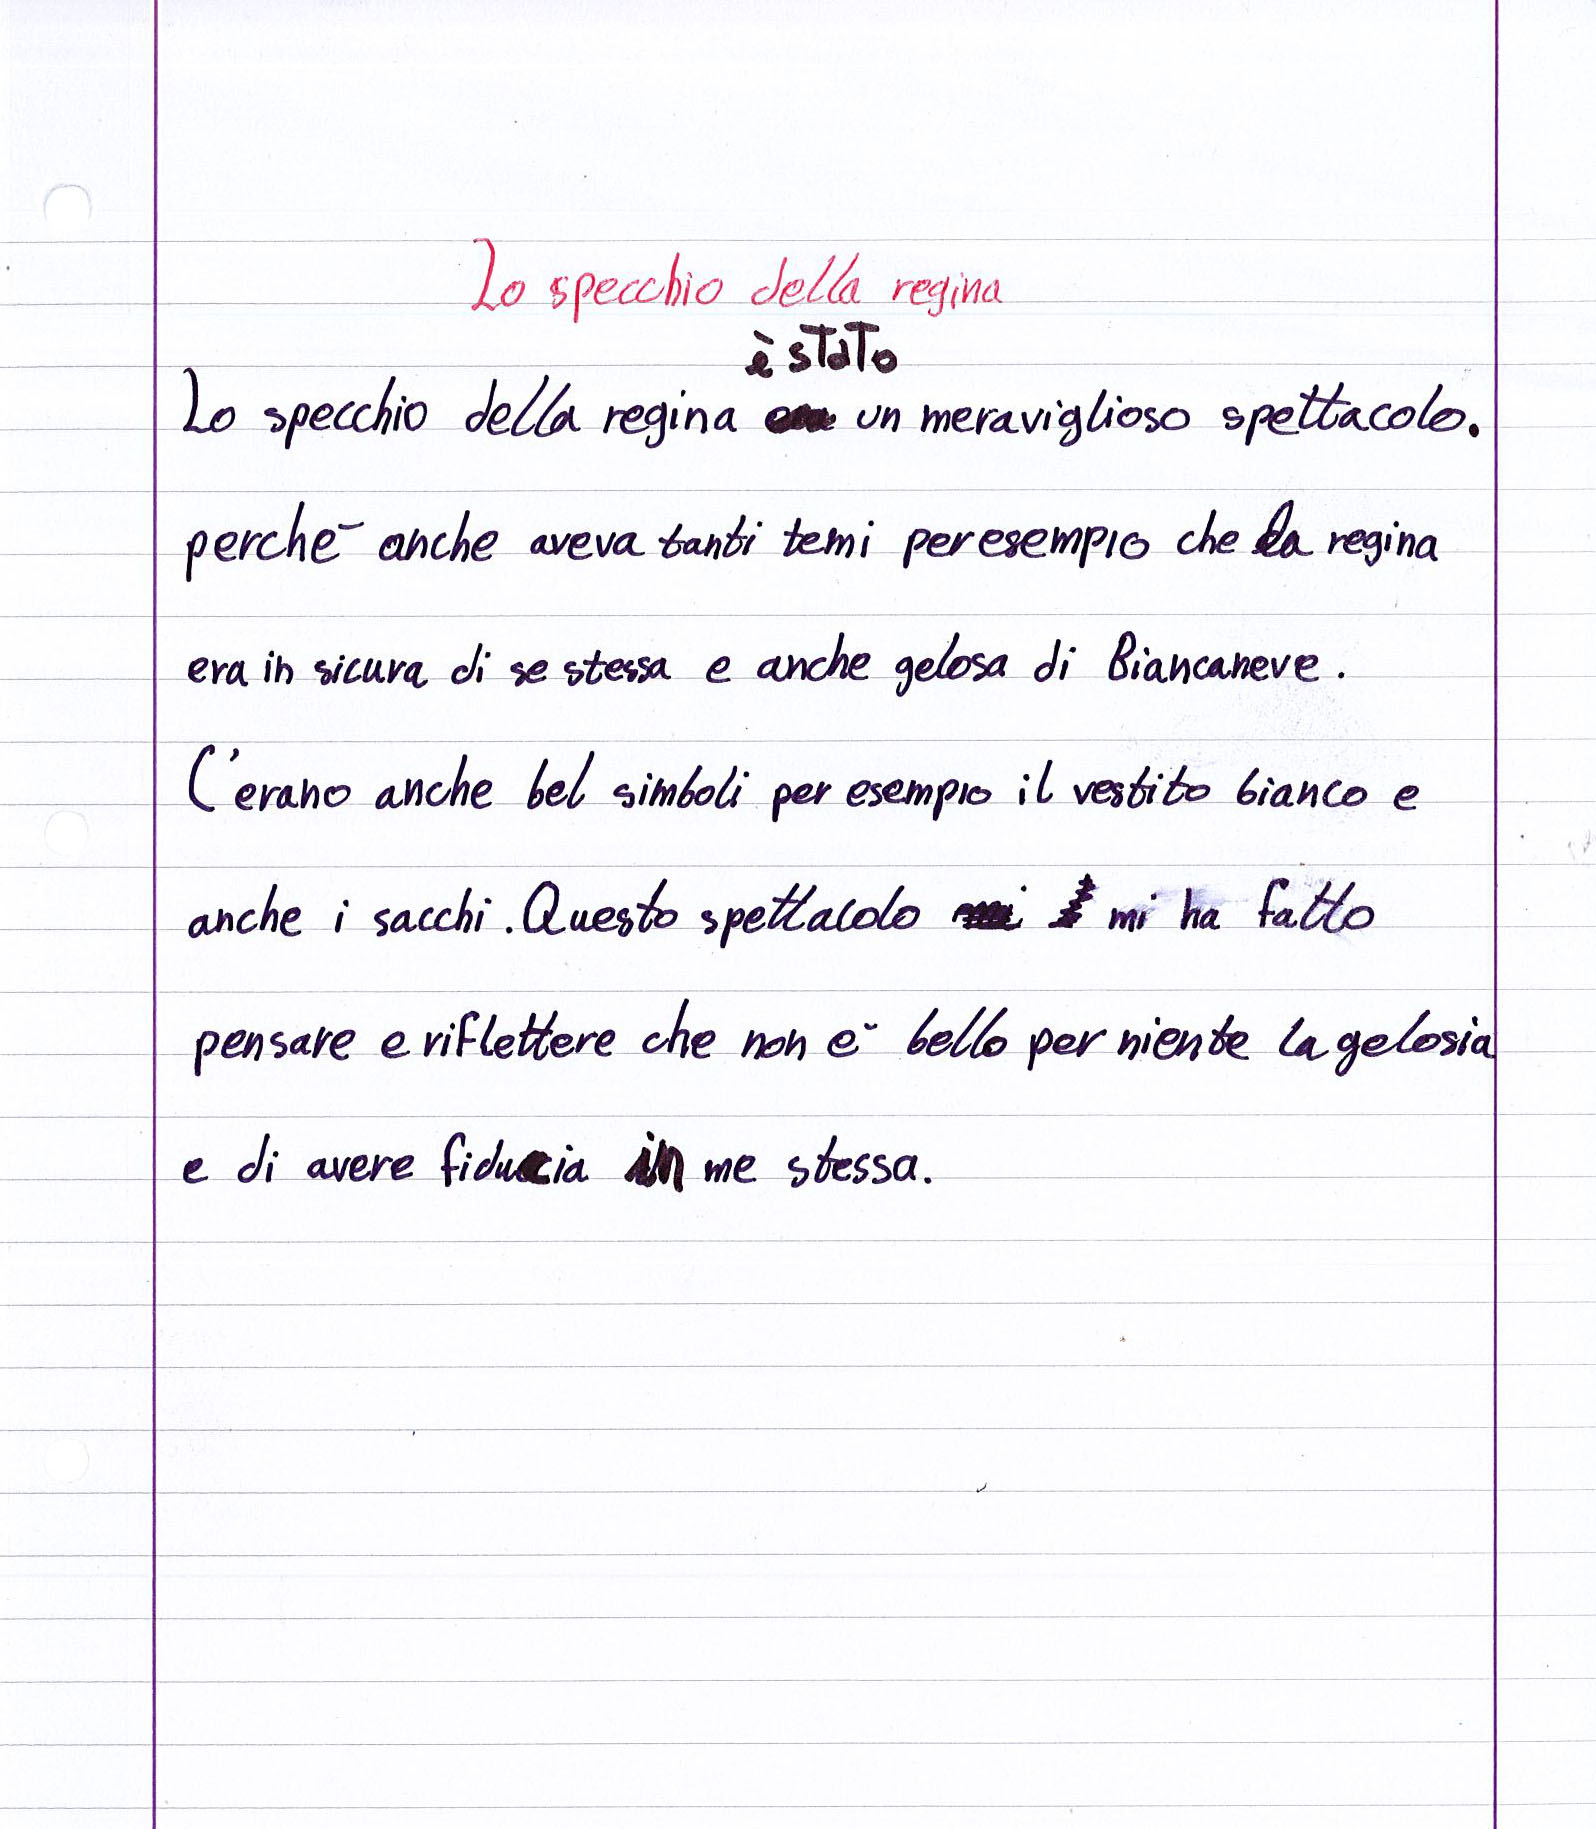 Lo specchio della regina
è stato
Lo specchio della regina un meraviglioso spettacolo.
perchē anche aveva tanti temi per esempio che la regina
era in sicura di se stessa e anche gelosa di Biancaneve.
C'erano anche bel simboli per esempio il vestito bianco e
anche i sacchi. Questo spettacolo mi ha fatto
pensare e riflettere che non ē bello per niente la gelosia
e di avere fiducia in me stessa.